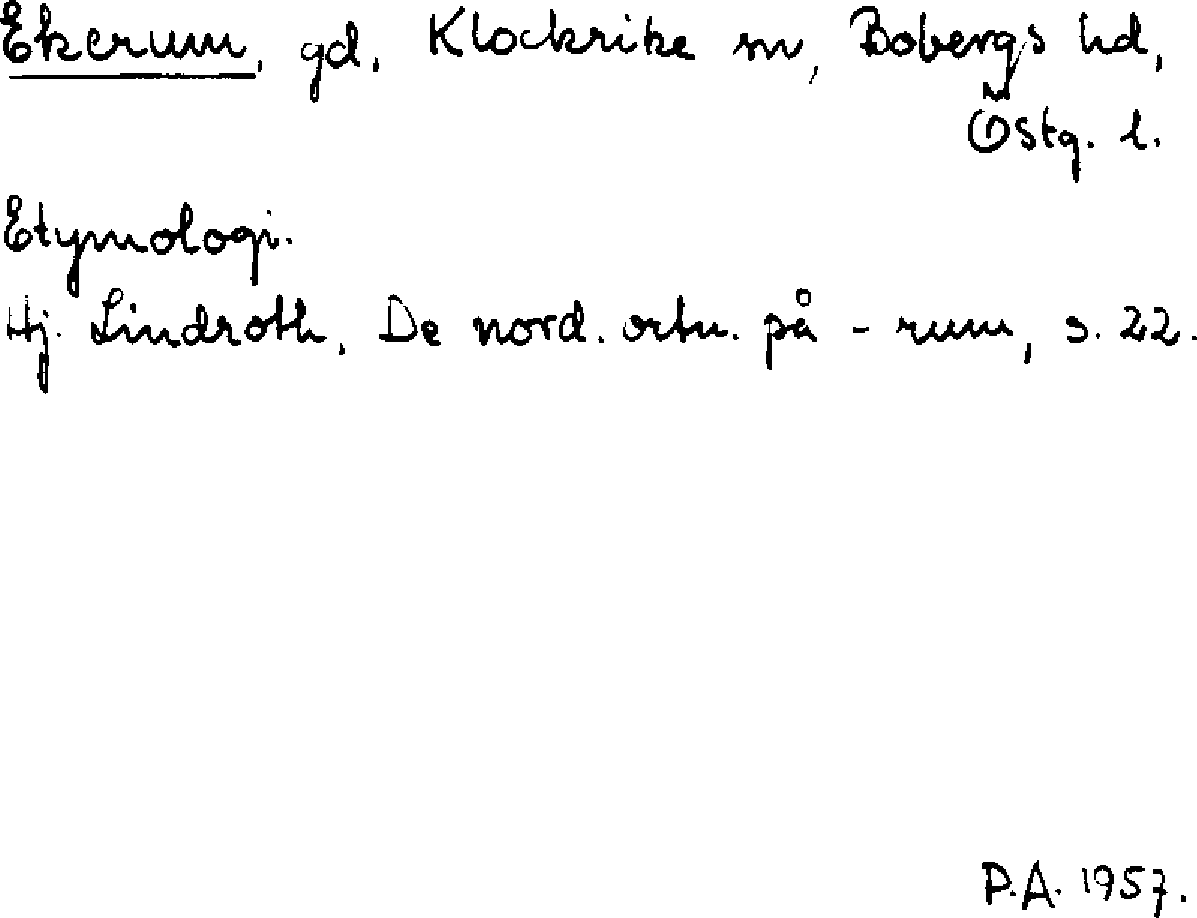 Ekerum, gd, Klockrike sn, Bobergs hd,
Östg. l.
Etymologi.
Hj. Lindroth, De nord. ortn. på -rum, s. 22.
P.A. 1957.